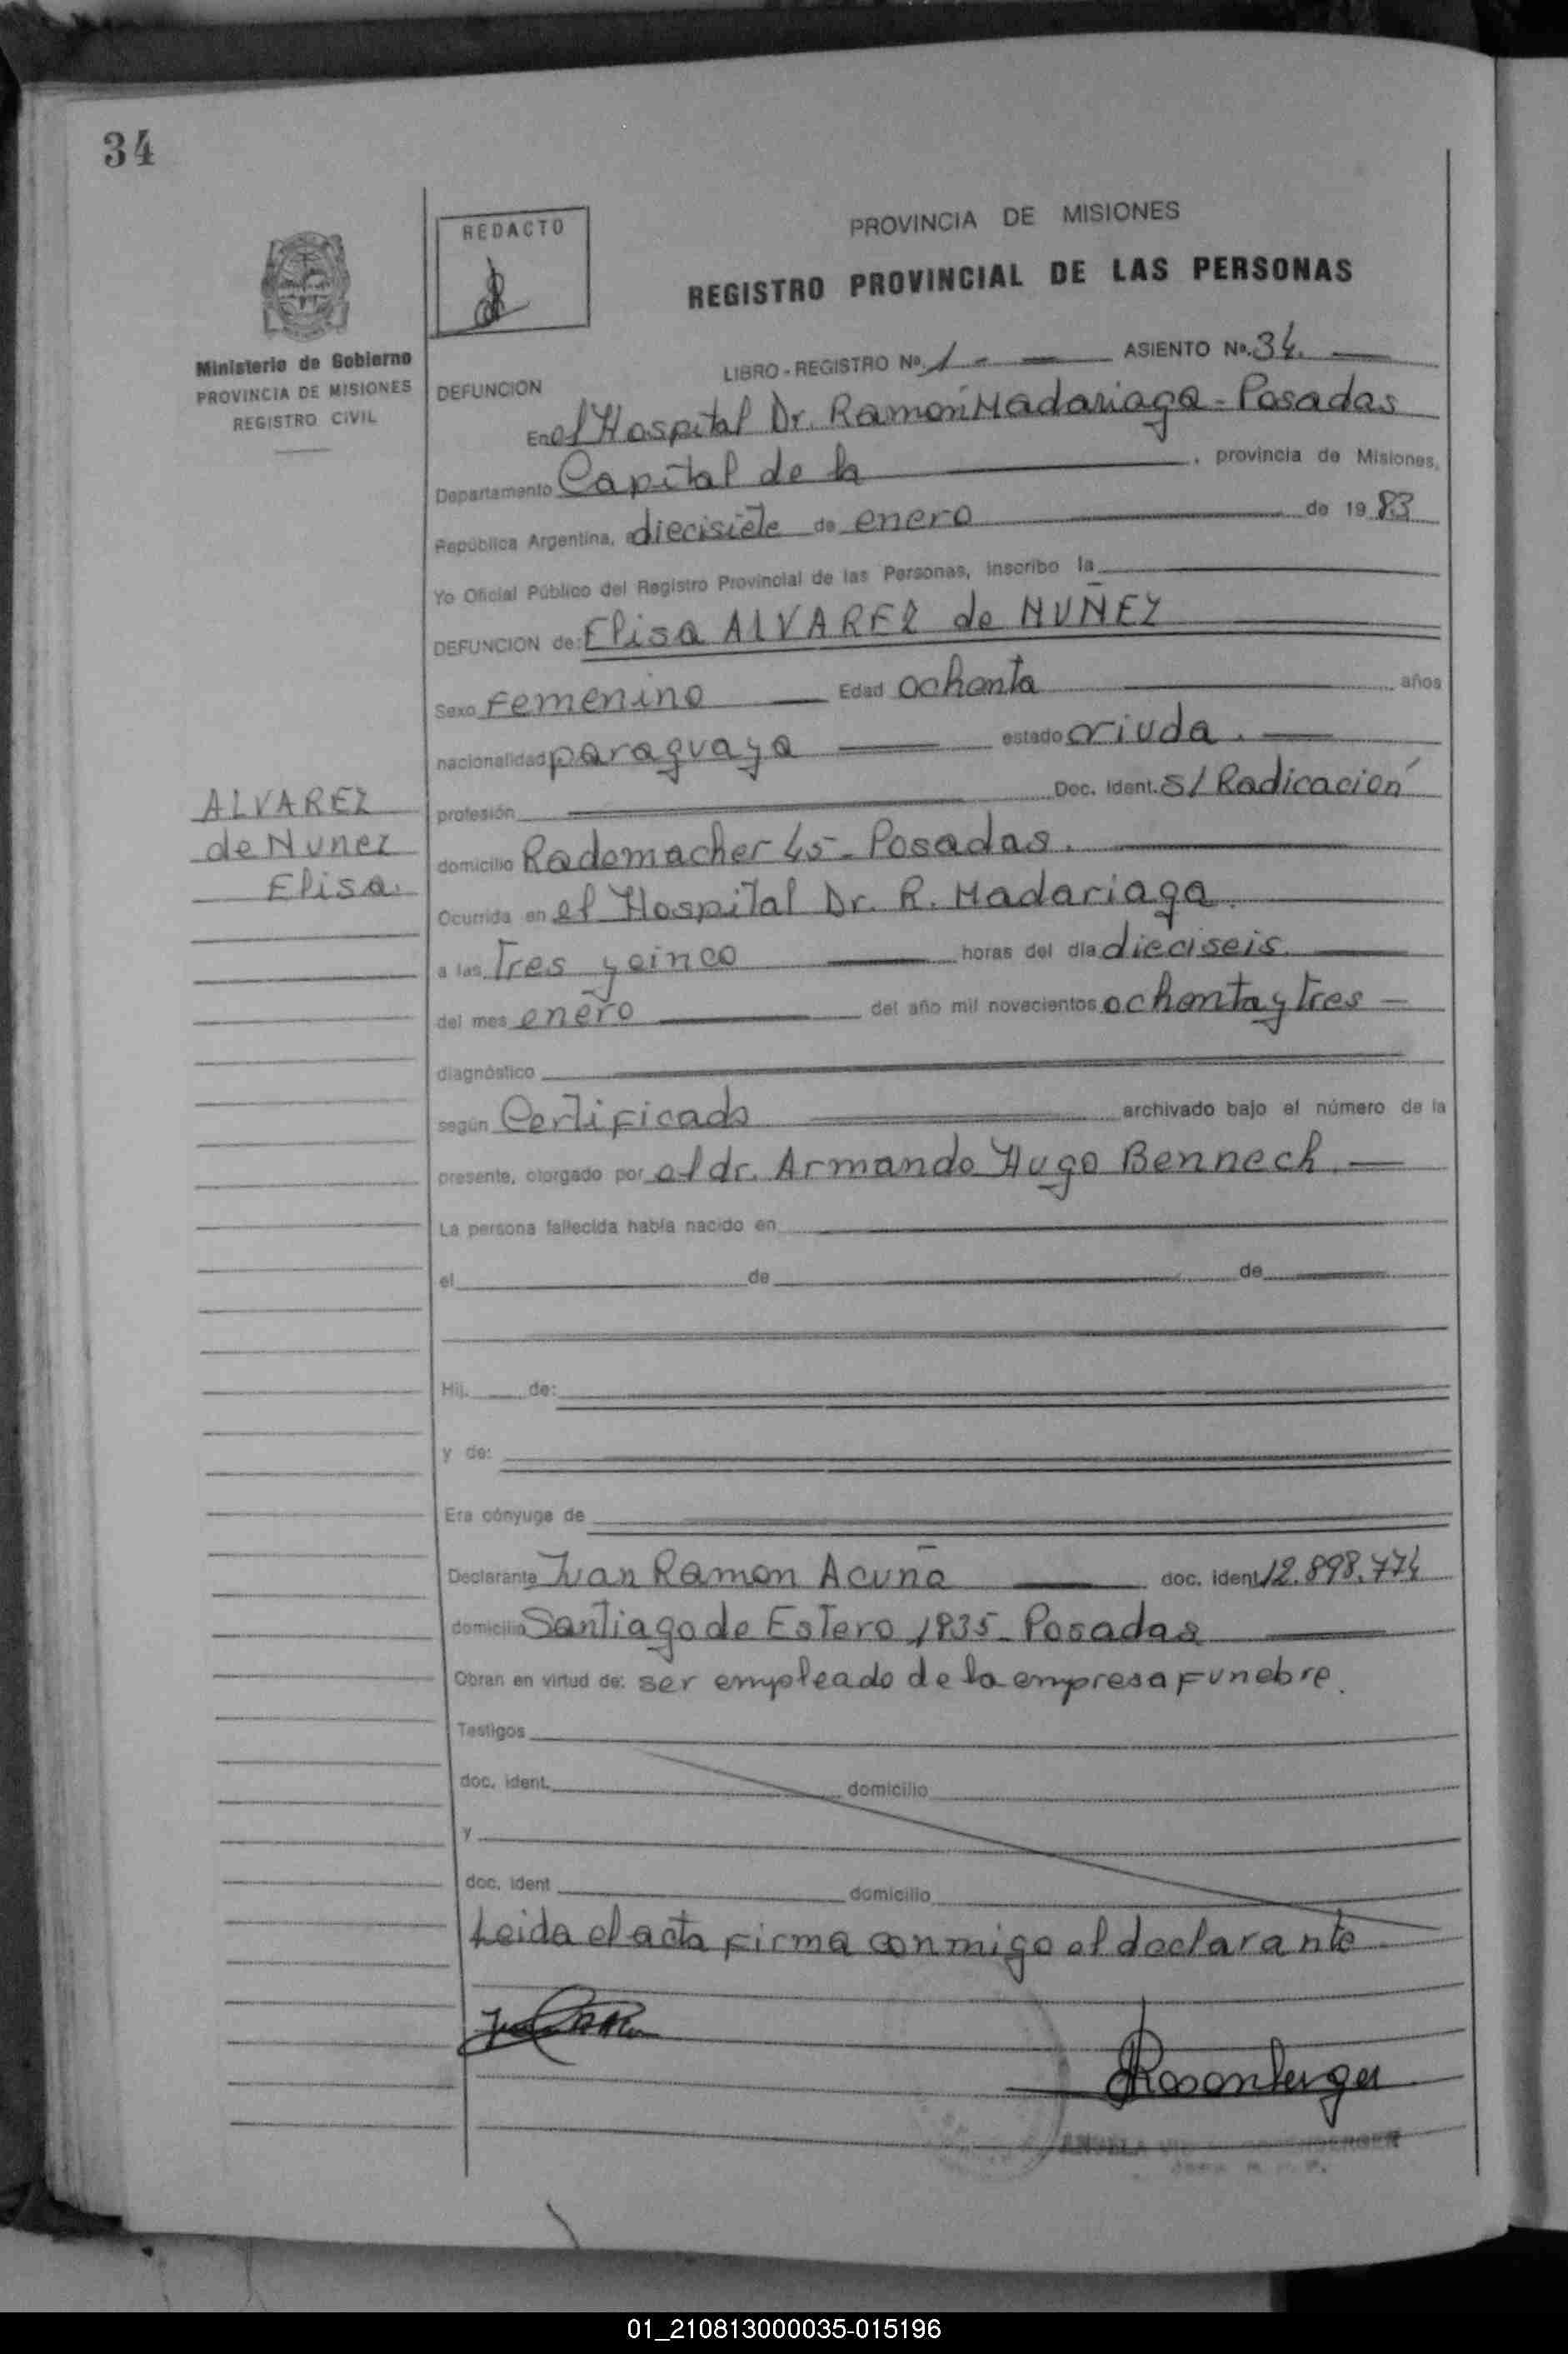 34
REDACTO
PROVINCIA DE MISIONES
REGISTRO PROVINCIAL DE LAS PERSONAS
Ministerio de Gobierno
PROVINCIA DE MISIONES
REGISTRO CIVIL
LIBRO - REGISTRO Nº. 1 - ASIENTO Nº. 34.
DEFUNCION
En el Hospital Dr. Ramón Madariaga - Posadas
Departamento Capital de la , provincia de Misiones,
República Argentina, a diecisiete de enero de 1983
Yo Oficial Público del Registro Provincial de las Personas, inscribo la
DEFUNCION de: Elisa ALVAREZ de NUÑEZ
Sexo Femenino Edad ochenta años
nacionalidad paraguaya estado viuda.
profesión Doc. Ident. S/ Radicación
ALVAREZ
de Nunez
Elisa.
domicilio Rademacher 45 - Posadas.
Ocurrida en el Hospital Dr. R. Madariaga.
a las Tres y cinco horas del día dieciseis.
del mes enero del año mil novecientos ochenta y tres
diagnóstico
según Certificado archivado bajo el número de la
presente, otorgado por el dr. Armando Hugo Bennech.
La persona fallecida había nacido en
el de de
Hij. de:
y de:
Era cónyuge de
Declarante Juan Ramon Acuña doc. ident 12.898.774
domicilio Santiago de Estero 1835 - Posadas
Obran en virtud de: ser empleado de la empresa funebre.
Testigos
doc. ident. domicilio
y
doc. ident domicilio
Leida el acta firma conmigo el declarante
Rosenberger
01_210813000035-015196